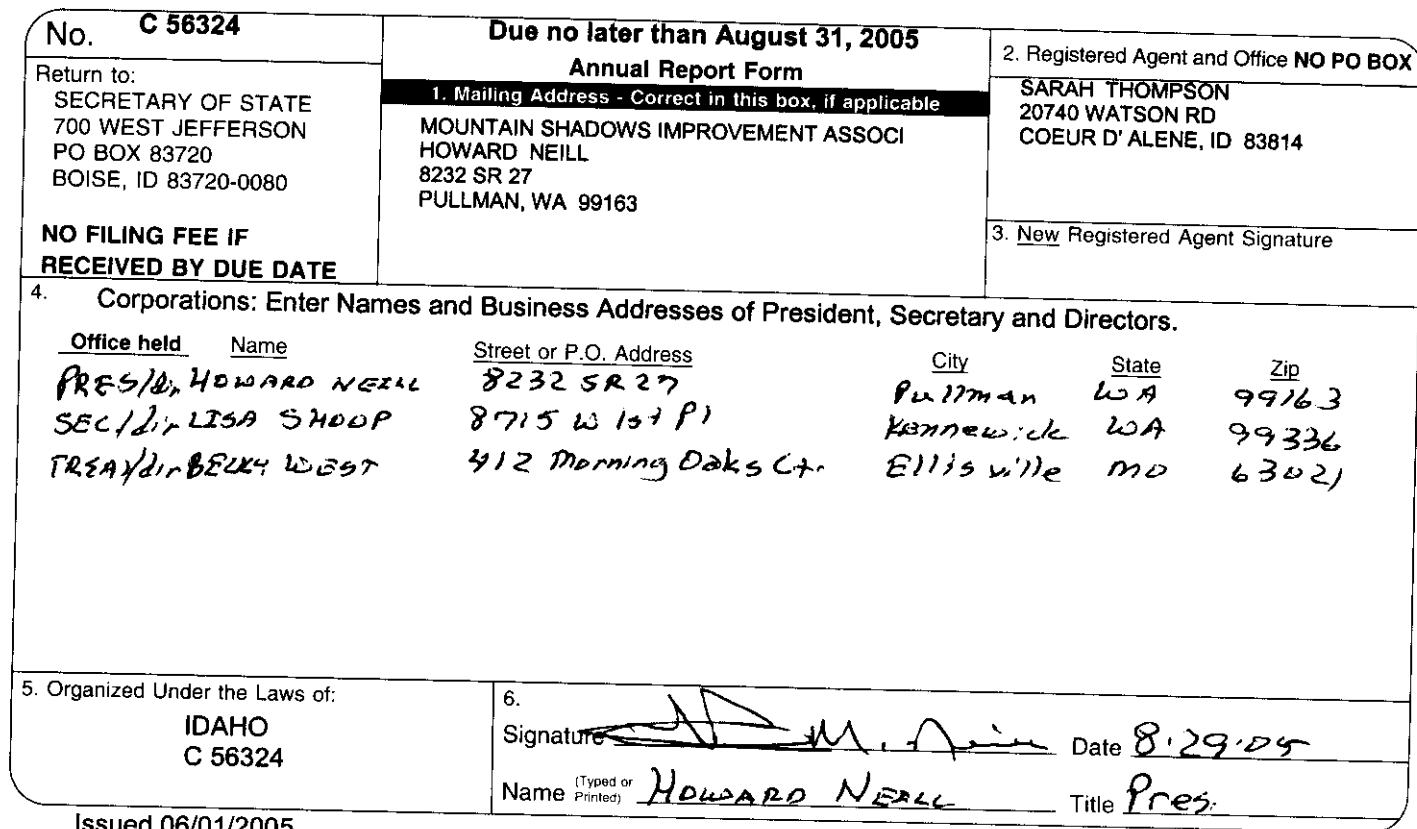 No. C 56324
Return to:
SECRETARY OF STATE
700 WEST JEFFERSON
PO BOX 83720
BOISE, ID 83720-0080
NO FILING FEE IF
RECEIVED BY DUE DATE
Due no later than August 31, 2005
Annual Report Form
1. Mailing Address - Correct in this box, if applicable
MOUNTAIN SHADOWS IMPROVEMENT ASSOCI
HOWARD NEILL
8232 SR 27
PULLMAN, WA 99163
2. Registered Agent and Office NO PO BOX
SARAH THOMPSON
20740 WATSON RD
COEUR D' ALENE, ID 83814
3. New Registered Agent Signature
4. Corporations: Enter Names and Business Addresses of President, Secretary and Directors.
Office held Name Street or P.O. Address City State Zip
PRES/dir HOWARD NEILL 8232 SR 27 Pullman WA 99163
SEC/dir LISA SHOOP 8715 W 1st Pl Kennewick WA 99336
TREA/dir WEST 412 Morning Oaks Ctr. Ellisville MO 63021
5. Organized Under the Laws of:
IDAHO
C 56324
6.
Signature M. Date 8.29.05
Name (Typed or Printed) HOWARD NEILL Title Pres.
Issued 06/01/2005